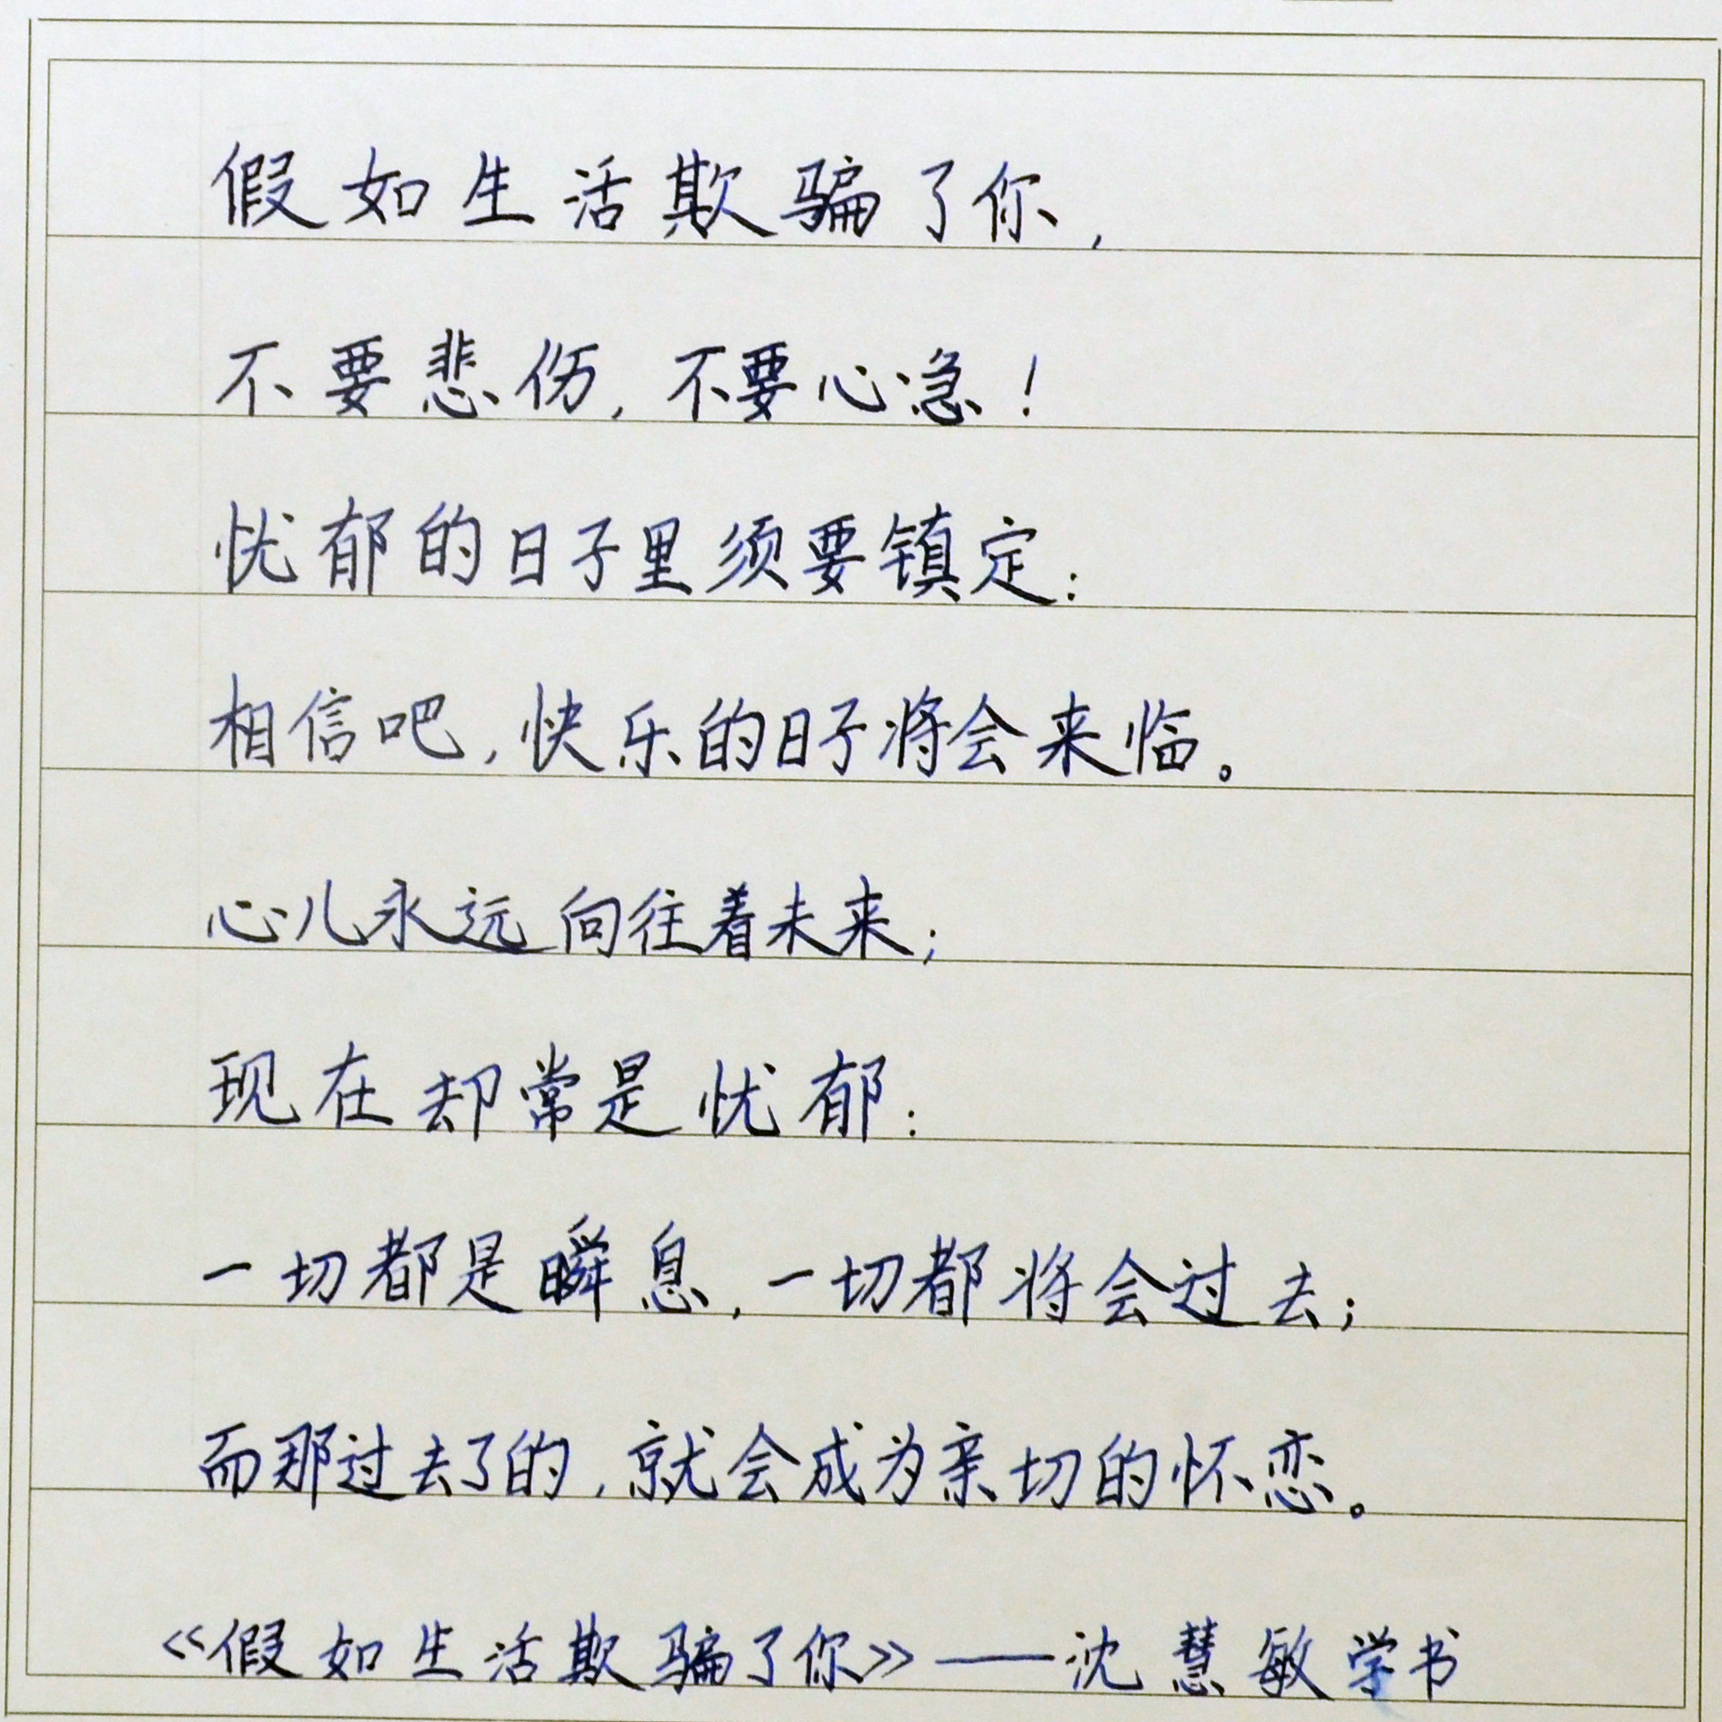 假如生活欺骗了你,
不要悲伤,不要心急!
忧郁的日子里须要镇定:
相信吧,快乐的日子将会来临。
心儿永远向往着未来;
现在却常是忧郁:
一切都是瞬息,一切都将会过去;
而那过去了的,就会成为亲切的怀恋。
《假如生活欺骗了你》——沈慧敏学书